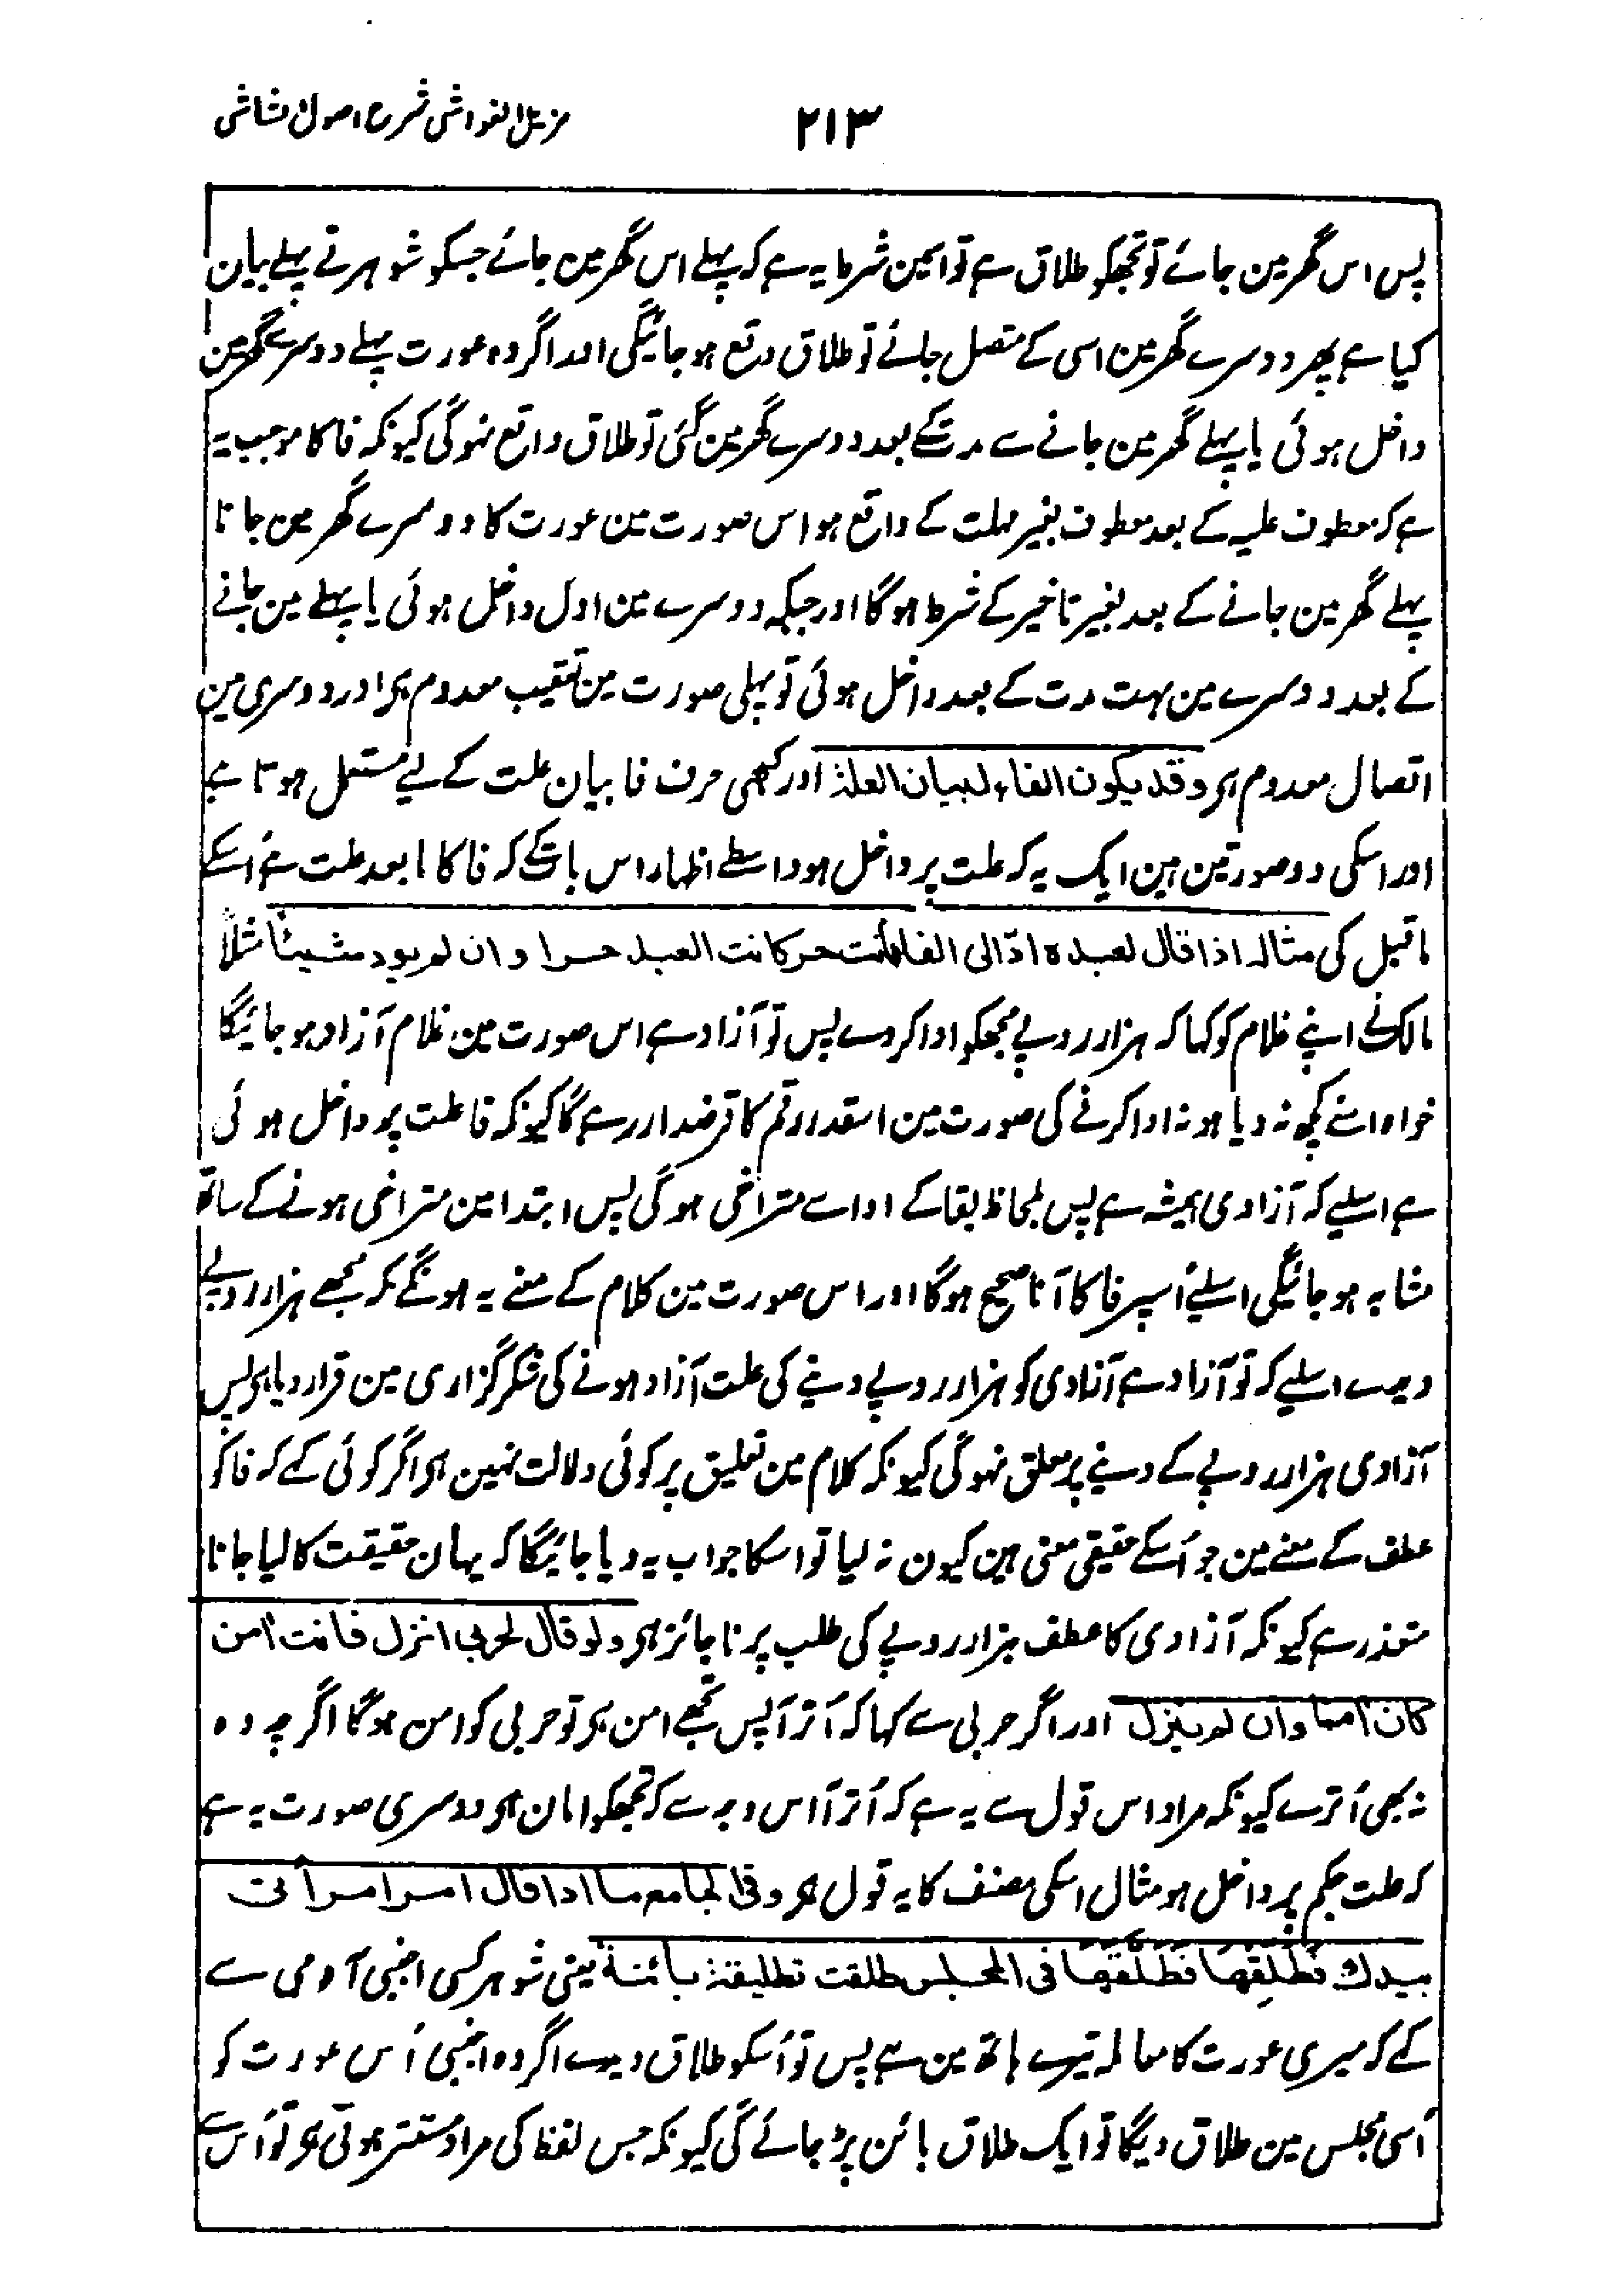 مزیل الغواشی شرح اصول الشاشی
۲۱۳
پس اس گھر مین جائے تو تجھکو طلاق ہے تو اسمین شرط یہ ہے کہ پہلے اس گھر مین جائے جسکو شوہر نے پہلے بیان
کیا ہے پھر دوسرے گھر مین اسی کے متصل جائے تو طلاق وقع ہو جائیگی اور اگر وہ عورت پہلے دوسرے گھر مین
داخل ہوئی یا پہلے گھر مین جانے سے مدت کے بعد دوسرے گھر مین گئی تو طلاق واقع نہوگی کیونکہ فا کا موجب یہ
ہے کہ معطوف علیہ کے بعد معطوف بغیر مہلت کے واقع ہو اس صورت مین عورت کا دوسرے گھر مین جانا
پہلے گھر مین جانے کے بعد بغیر تاخیر کے شرط ہوگا اور جبکہ دوسرے مین اول داخل ہوئی یا پہلے مین جانے
کے بعد دوسرے مین بہت مدت کے بعد داخل ہوئی تو پہلی صورت مین تعقیب معدوم ہی اور دوسری مین
اتصال معدوم ہی وقد یکون الفاء لبیان العلة اور کبھی حرف فا بیان علت کے لیے مستعمل ہوتا ہے
اور اسکی دو صورتین ہین ایک یہ کہ علت پر داخل ہو واسطے اظہار اس بات کے کہ فا کا ما بعد علت ہے اُسکے
ماقبل کی مثاله اذا قال لعبده ادّ الی الفا فانت حر کانت العبد حرا وان لم یود شیئا مثلاً
مالک نے اپنے غلام کو کہا کہ ہزار روپے مجھکو ادا کر دے پس تو آزاد ہے اس صورت مین غلام آزاد ہو جائیگا
خواہ اسنے کچھ نہ دیا ہو نہ ادا کرنے کی صورت مین اسقدر رقم کا قرضدار رہے گا کیونکہ فا علت پر داخل ہوئی
ہے اسلیے کہ آزادی ہمیشہ ہے پس بلحاظ بقا کے ادا سے متراخی ہوگی پس ابتدا مین متراخی ہونے کے ساتھ
مشابہ ہو جائیگی اسلیے اُسپر فا کا آنا صحیح ہوگا اور اس صورت مین کلام کے معنے یہ ہونگے کہ مجھے ہزار روپے
دیدے اسلیے کہ تو آزاد ہے آزادی کو ہزار روپے دینے کی علت آزاد ہونے کی شکر گزاری مین قرار دیا ہی پس
آزادی ہزار روپے کے دینے پر معلق نہوگی کیونکہ کلام مین تعلیق پر کوئی دلالت نہین ہی اگر کوئی کہے کہ فا کو
عطف کے معنے مین جو اُسکے حقیقی معنی ہین کیون نہ لیا تو اسکا جواب یہ دیا جائیگا کہ یہان حقیقت کا لیا جانا
متعذر ہے کیونکہ آزادی کا عطف ہزار روپے کی طلب پر ناجائز ہی ولو قال لحربی انزل فانت اٰمن
کان اٰمنا وان لم ینزل اور اگر حربی سے کہا کہ اُتر آ پس تجھے امن ہی تو حربی کو امن ہوگا اگرچہ وہ
نہ بھی اُترے کیونکہ مراد اس قول سے یہ ہے کہ اُتر آ اس وجہ سے کہ تجھکو امان ہی دوسری صورت یہ ہے
کہ علت حکم پر داخل ہو مثال اسکی مصنف کا یہ قول ہی وفی الجامع ما اذا قال امر امرأتی
بیدك فَطَلِّقْهَا فَطَلَّقَهَا فی المجلس طلقت تطلیقة بائنة یعنی شوہر کسی اجنبی آدمی سے
کہے کہ میری عورت کا معاملہ تیرے ہاتھ مین ہے پس تو اُسکو طلاق دیدے اگر وہ اجنبی اُس عورت کو
اُسی مجلس مین طلاق دیگا تو ایک طلاق بائن پڑ جائے گی کیونکہ جس لفظ کی مراد مستتر ہوتی ہی تو اُس سے